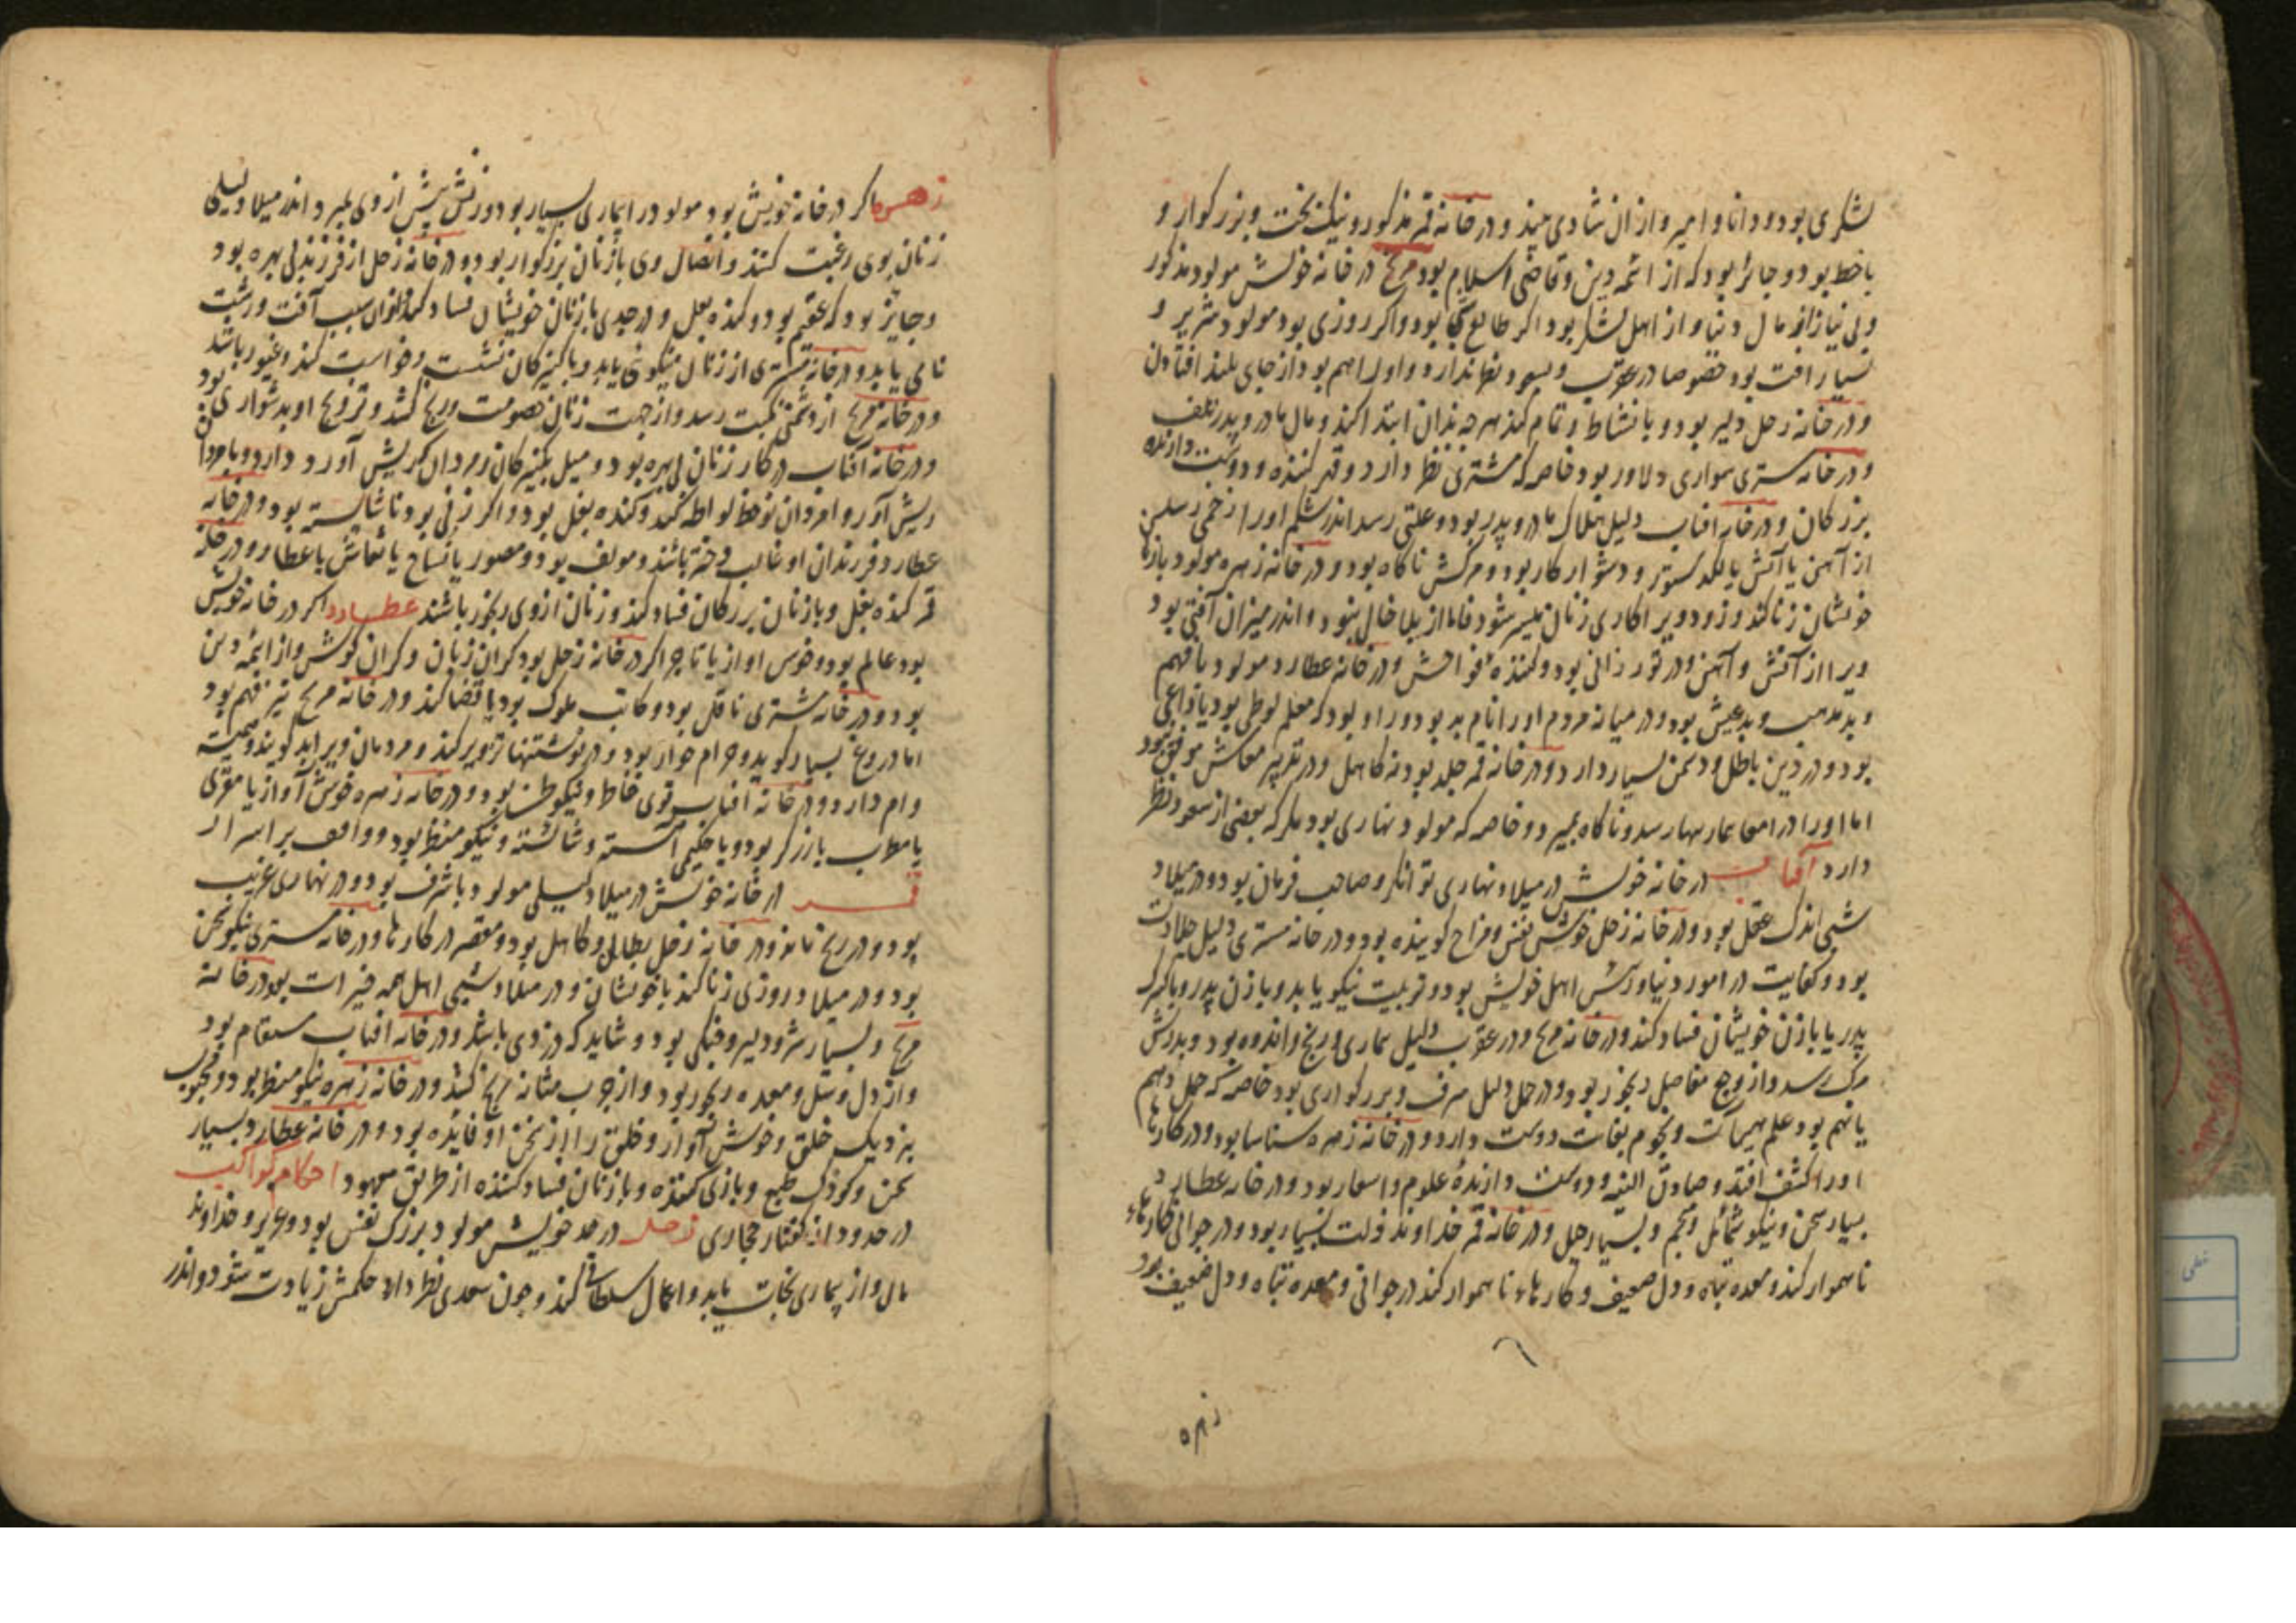 لشکری بود و دانا و امیر و ازان شادی بیند و در خانه قمر مذکور و نیک بخت و بزرکوار و
با خط بود و جائز بود که از ائمه دین و قاضی اسلام بود مریخ در خانه خویش مولود مذکور
و بی نیاز از مال دنیا و از اهل لشکر بود اکر طالع بود و اکر روزی بود مولود شریر و
بسیار آفت بود خصوصا در عقرب و سعود نظر ندارد و اول ابهم بود از جای بلند افتادن
و در خانه زحل دلیر بود و با نشاط و تمام کند هر چه بدان ابتدا کند و مال مادر و پدر تلف
و در خانه مشتری سواری دلاور بود خاصه که مشتری نظر دارد و قهر کننده و دوست دارنده
بزرکان و در خانه افتاب دلیل هلاک مادر و پدر بود و علتی رسد اندر شکم او را زخمی رسد
از آهن یا آتش یا لکد ستور و دشوار کار بود و مرکش ناکاه بود و در خانه زهره مولود با زنان
خویشان زنا کند و زود ویرا کار زنان میسر شود فاما از بلا خالی نبود و اندر میزان آفتی بود
ویرا از آتش و آهن و در ثور زانی بود و کننده فواحش و در خانه عطارد مولود با فهم
و بد مذهب و بد عیش بود و در میانه مردم او را نام بد بود و روا بود که معلم لوطی بود یا
بود و در دین باطل و دشمن بسیار دارد و در خانه قمر جلد بود نه کاهل و در تدبیر معاش موفق بود
اما او را در امعا بیماریها رسد و ناکاه بمیرد و خاصه که مولود نهاری بود مکر که بعضی از سعود نظر
دارد آفتاب در خانه خویش در میلاد نهاری توانکر و صاحب فرمان بود و در میلاد
شبی اندک عقل بود و در خانه زحل خوش نفس و مزاح کوینده بود و در خانه مشتری دلیل جلادت
بود و کفایت در امور دنیا و رئیس اهل خویش بود و تربیت نیکو یابد و با زن پدر و با کنیزک
پدر یا با زن خویشان فساد کند و در خانه مریخ و در عقرب دلیل بیماری و رنج و اندوه بود و پدرش
مرک رسد و از وجع مفاصل رنجور بود و در حمل دلیل شرف و بزرکواری بود خاصه که حمل دهم
یا نهم بود علم هیأت و نجوم بغایت دوست دارد و در خانه زهره شناسا بود و در کارها
او را کشف افتد و صادق النیه و دوست دارنده علوم و اسمار بود و در خانه عطارد
بسیار سخن و نیکو شمائل و منجم و بسیار حیل و در خانه قمر خداوند دولت بسیار بود و در جوانی کارهاء
ناهموار کند و معده تباه و دل ضعیف و کارهاء ناهموار کند در جوانی و معده تباه و دل ضعیف بود
زهره
زهره اکر در خانه خویش بود مولود را بیماری بسیار بود و زنش پیش از وی بمیرد و اندر میلاد لیلی
زنان بوی رغبت کنند و اتصال وی با زنان بزرکوار بود و در خانه زحل از فرزند بی بهره بود
و جایز بود که عقیم بود و کنده بغل و در جدی با زنان خویشان فساد کند و زنان سبب آفت و رشت
نامی یابد و در خانه مشتری از زنان نیکوئی یابد و با کنیزکان نشست و خواست کند و غیور باشد
و در خانه مریخ از دشمن نکبت رسد و از جهت زنان خصومت و رنج کشد و تزویج او بدشواری بود
و در خانه آفتاب در کار زنان بی بهره بود و میل بکنیزکان و مردان کبر ریش آورد دارد و با مردان
ریش آور و امردان نوخط لواطه کند و کنده بغل بود و اکر زنی بود ناشایسته بود و در خانه
عطارد فرزندان او غالب دختر باشند و مولف بود و مصور یا نساج یا نقاش یا عطار و در خانه
قمر کنده بغل و با زنان بزرکان فساد کند و زنان از وی رنجور باشند عطارد اکر در خانه خویش
بود عالم بود و خوش اواز یا تاجر اکر در خانه زحل بود کران زبان و کران کوش و از ائمه دین
بود و در خانه مشتری ناقل بود و کاتب ملوک بود یا قضا کند و در خانه مریخ تیز فهم بود
اما دروغ بسیار کوید و حرام خوار بود و در نوشتنها تزویر کند و مردمان ویرا بد کویند و همیشه
وام دارد و در خانه افتاب قوی خاطر و نیکو ظن بود و در خانه زهره خوش آواز یا مقری
یا مطرب یا زرکر بود و یا حکیمی آهسته و شائسته و نیکو منظر بود و واقف بر اسرار
قمر در خانه خویش در میلاد لیلی مولود با شرف بود و در نهاری غریب
بود و در رنج ماند و در خانه زحل بطال و کاهل بود و مقصر در کارها و در خانه مشتری نیکو سخن
بود و در میلاد روزی زنا کند با خویشان و در میلاد شبی اهل همه خیرات بود در خانه
مریخ و بسیار شر و دلیر و جنکی بود و شاید که دزدی باشد و در خانه افتاب سقام بود
و از دل و سل و معده رنجور بود و از جرب مثانه رنج کشد و در خانه زهره نیکو منظر بود و محبوب
بنزدیک خلق و خوش آواز و خلق را از سخن او فایده بود و در خانه عطارد بسیار
سخن و کودک طبع و بازی کننده و با زنان فساد کننده از طریق معهود احکام کواکب
در حدود از کفتار مجاری زحل در حد خویش مولود بزرک نفس بود و عزیز و خداوند
مال و از بیماری نجات یابد و اعمال سلطانی کند و چون سعدی نظر دارد حکمش زیادت شود و اندر